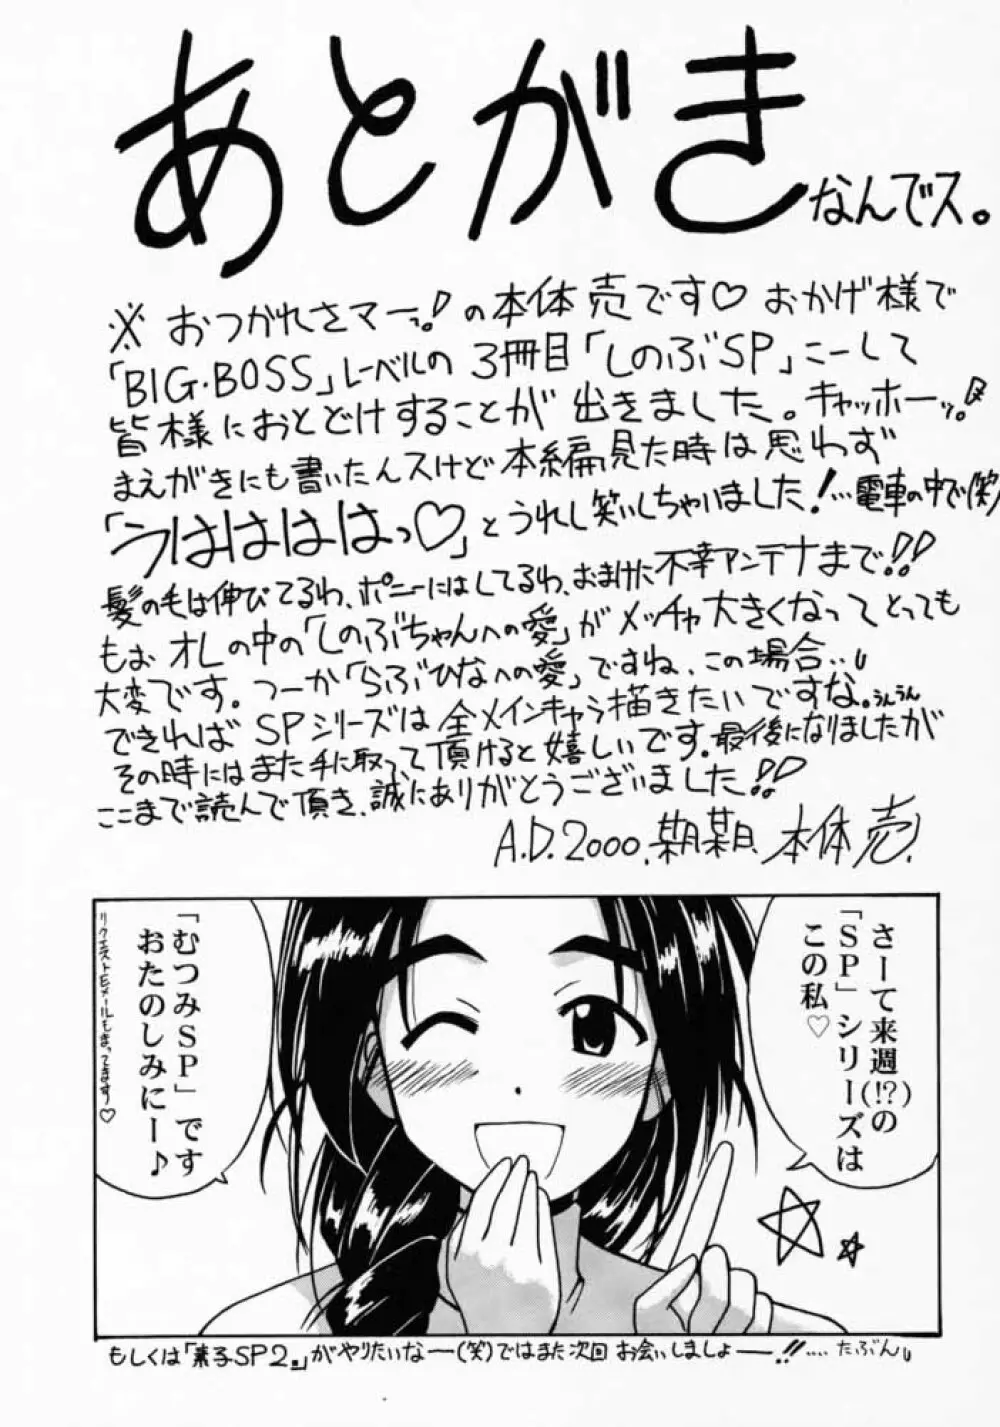 あとがき
なんでス。
※おつかれさマーっ!の本体売です♡おかげ様で
「BIG・BOSS」レーベルの3冊目「しのぶSP」こーして
皆様におとどけすることが出きました。キャッホーッ!
まえがきにも書いたんスけど本編見た時は思わず
「うはははははっ♡」とうれし笑いしちゃいました!…電車の中で(笑)
髪の毛は伸びてるわ、ポニーにはしてるわ、おまけに不幸アンテナまで!!
もおオレの中の「しのぶちゃんへの愛」がメッチャ大きくなってとっても
大変です。つーか「らぶひなへの愛」ですね、この場合…。
できればSPシリーズは全メインキャラ描きたいですな。うんうん
その時にはまた手に取って頂けると嬉しいです。最後になりましたが
ここまで読んで頂き、誠にありがとうございました!!
A.D.2000.某月某日 本体売.
さーて来週(!?)の
「SP」シリーズは
この私♡
「むつみSP」です
おたのしみにー♪
リクエストEメールもまってます♡
もしくは「素子SP2。」がやりたいなー(笑)ではまた次回お会いしましょーー!!‥‥たぶん。